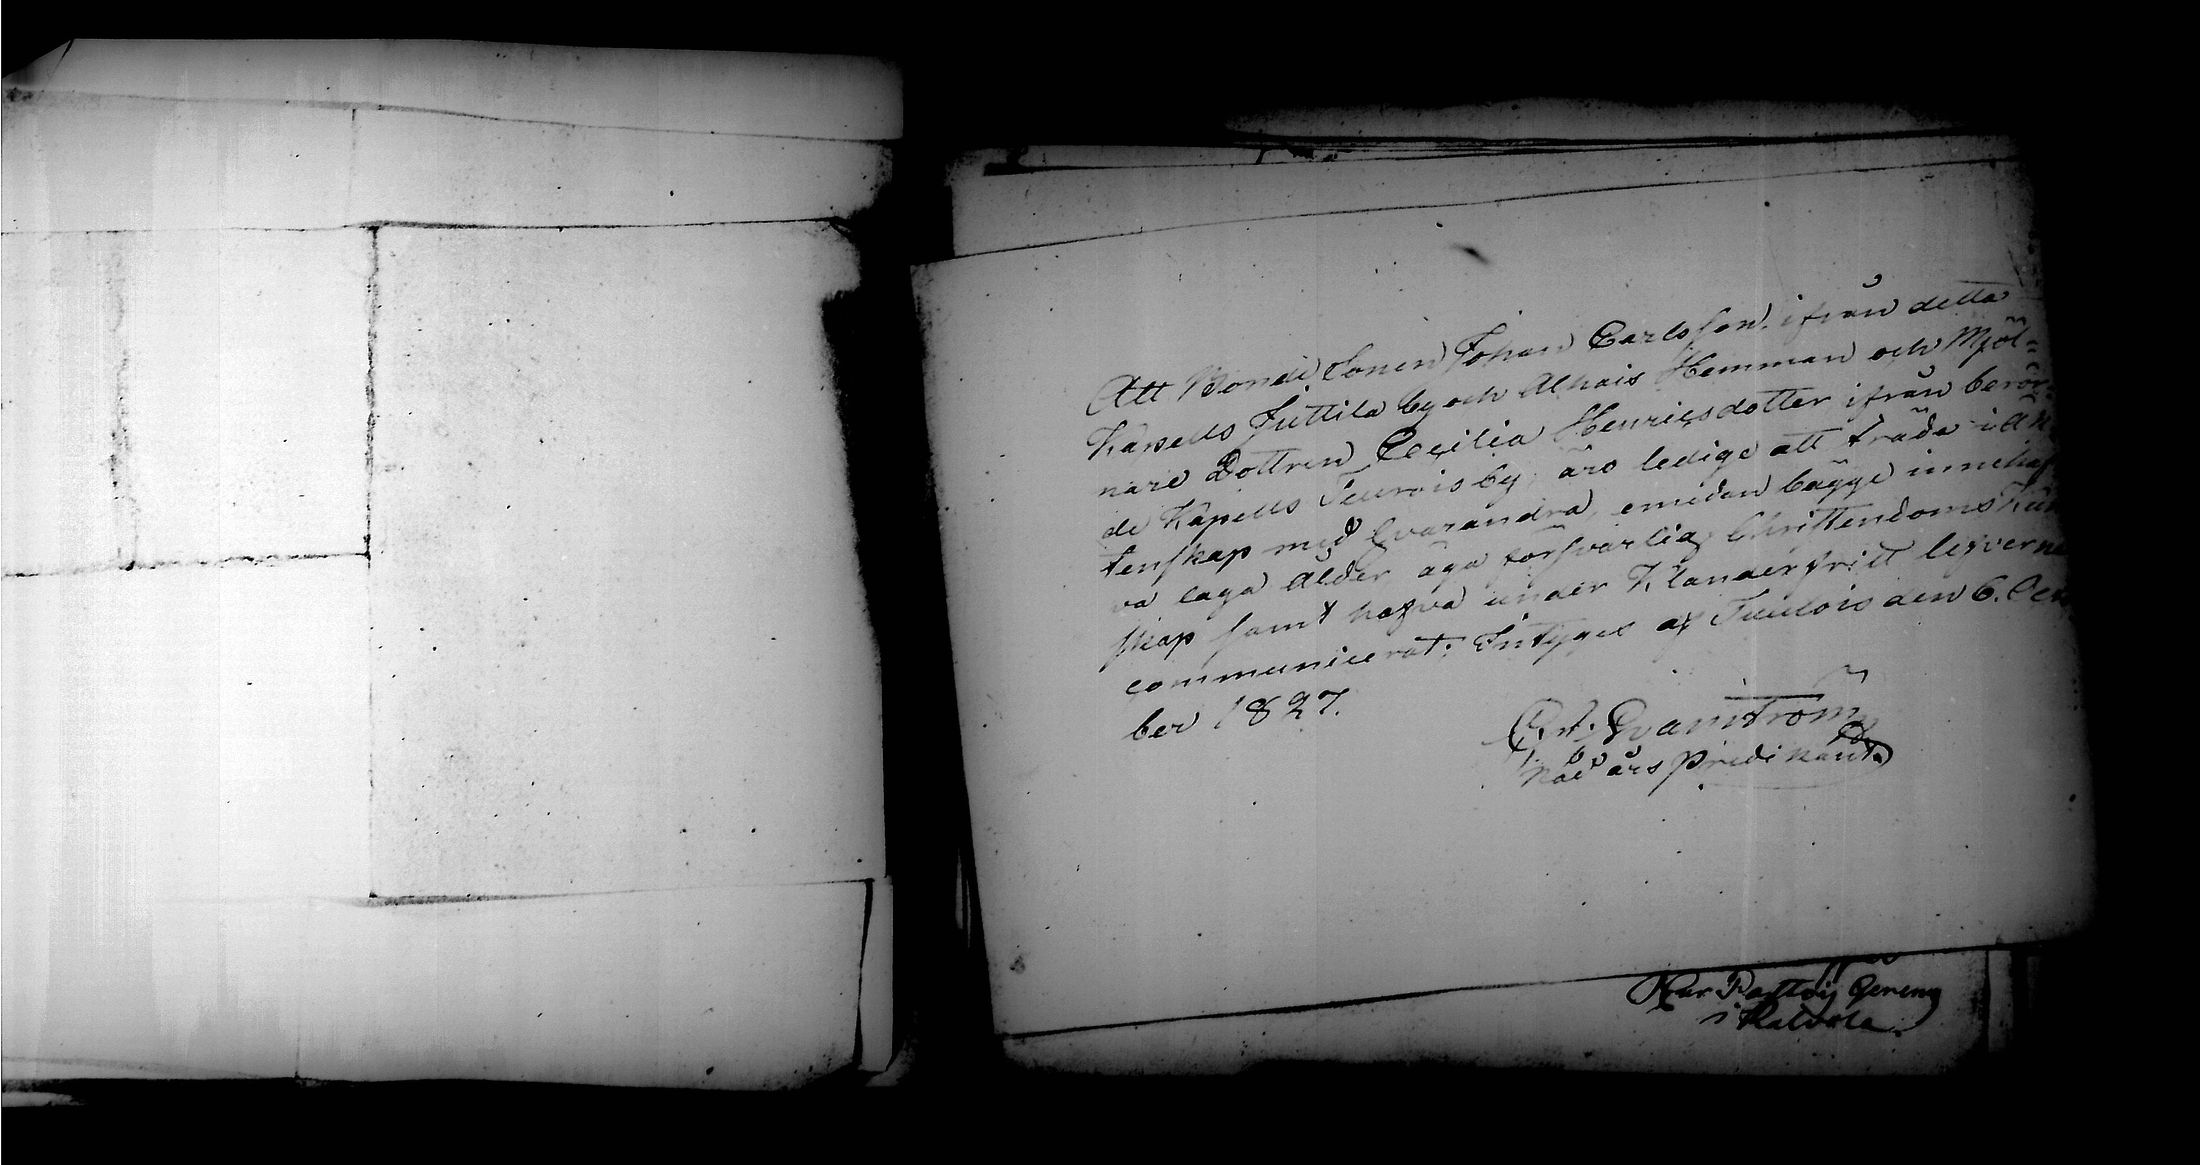 Att Bonde Sonen Johan Carlsson, ifrån detta
Kapells Juttila by och Alhais Hemman och Mjöl=
nare Dottren Cecilia Henricsdotter ifrån berör
de Kapells Teuroisby, äro ledige att träda i äk
tenskap med hvarandra, emedan bägge inneha
va laga Ålder, äga försvarlig Christendoms Kun
skap samt hafva under Klanderfritt lefverne
communicerat; Intygas af Tuulois den 6. Octo
ber 1827.
Qvanström
Nåd års Predikant.
i Kalvola.